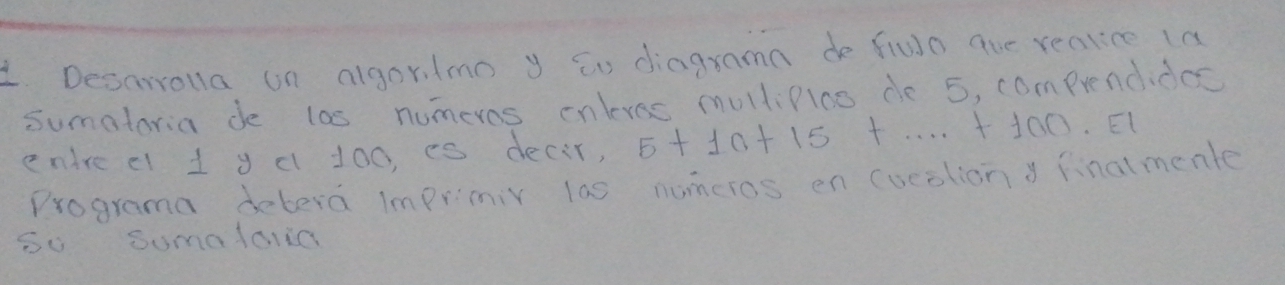 1 Desarrolla un algoritmo y su diagrama de flujo que realice la
sumatoria de los números enteros multiplos de 5, comprendidos
entre el 1 y el 100, es decir, 5 + 10 + 15 + .... + 100. El
Programa deberá imprimir los números en cuestión y finalmente
su sumatoria